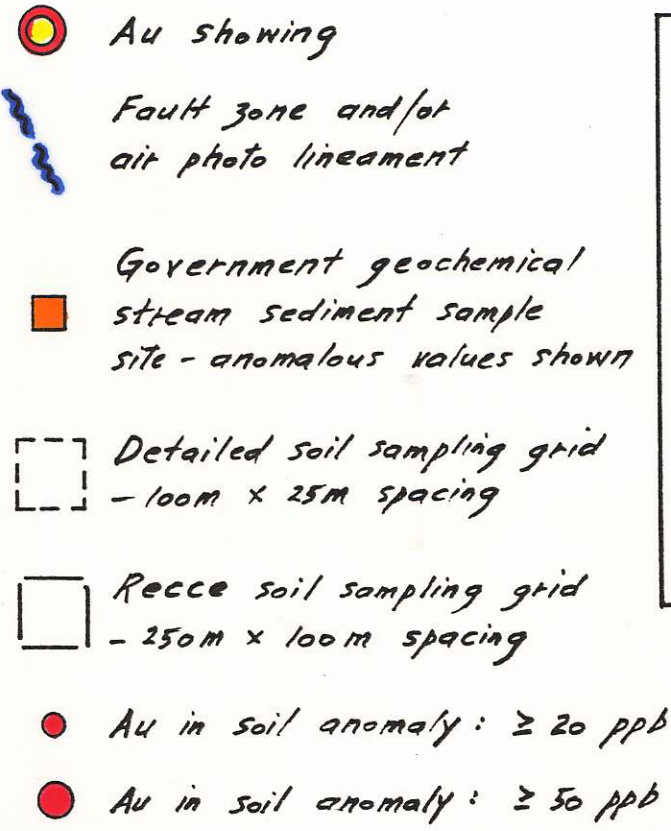 Au showing
Fault zone and/or
air photo lineament
Government geochemical
stream sediment sample
site - anomalous values shown
Detailed soil sampling grid
- 100m x 25m spacing
Recce soil sampling grid
- 250m x 100m spacing
Au in soil anomaly: ≥ 20 ppb
Au in soil anomaly: ≥ 50 ppb